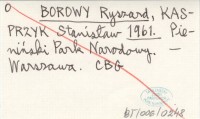 O BOROWY Ryszard, KAS-
PRZYK Stanisław 1961. Pie-
niński Park Narodowy. —
Warszawa. CBG
BT/000/0248